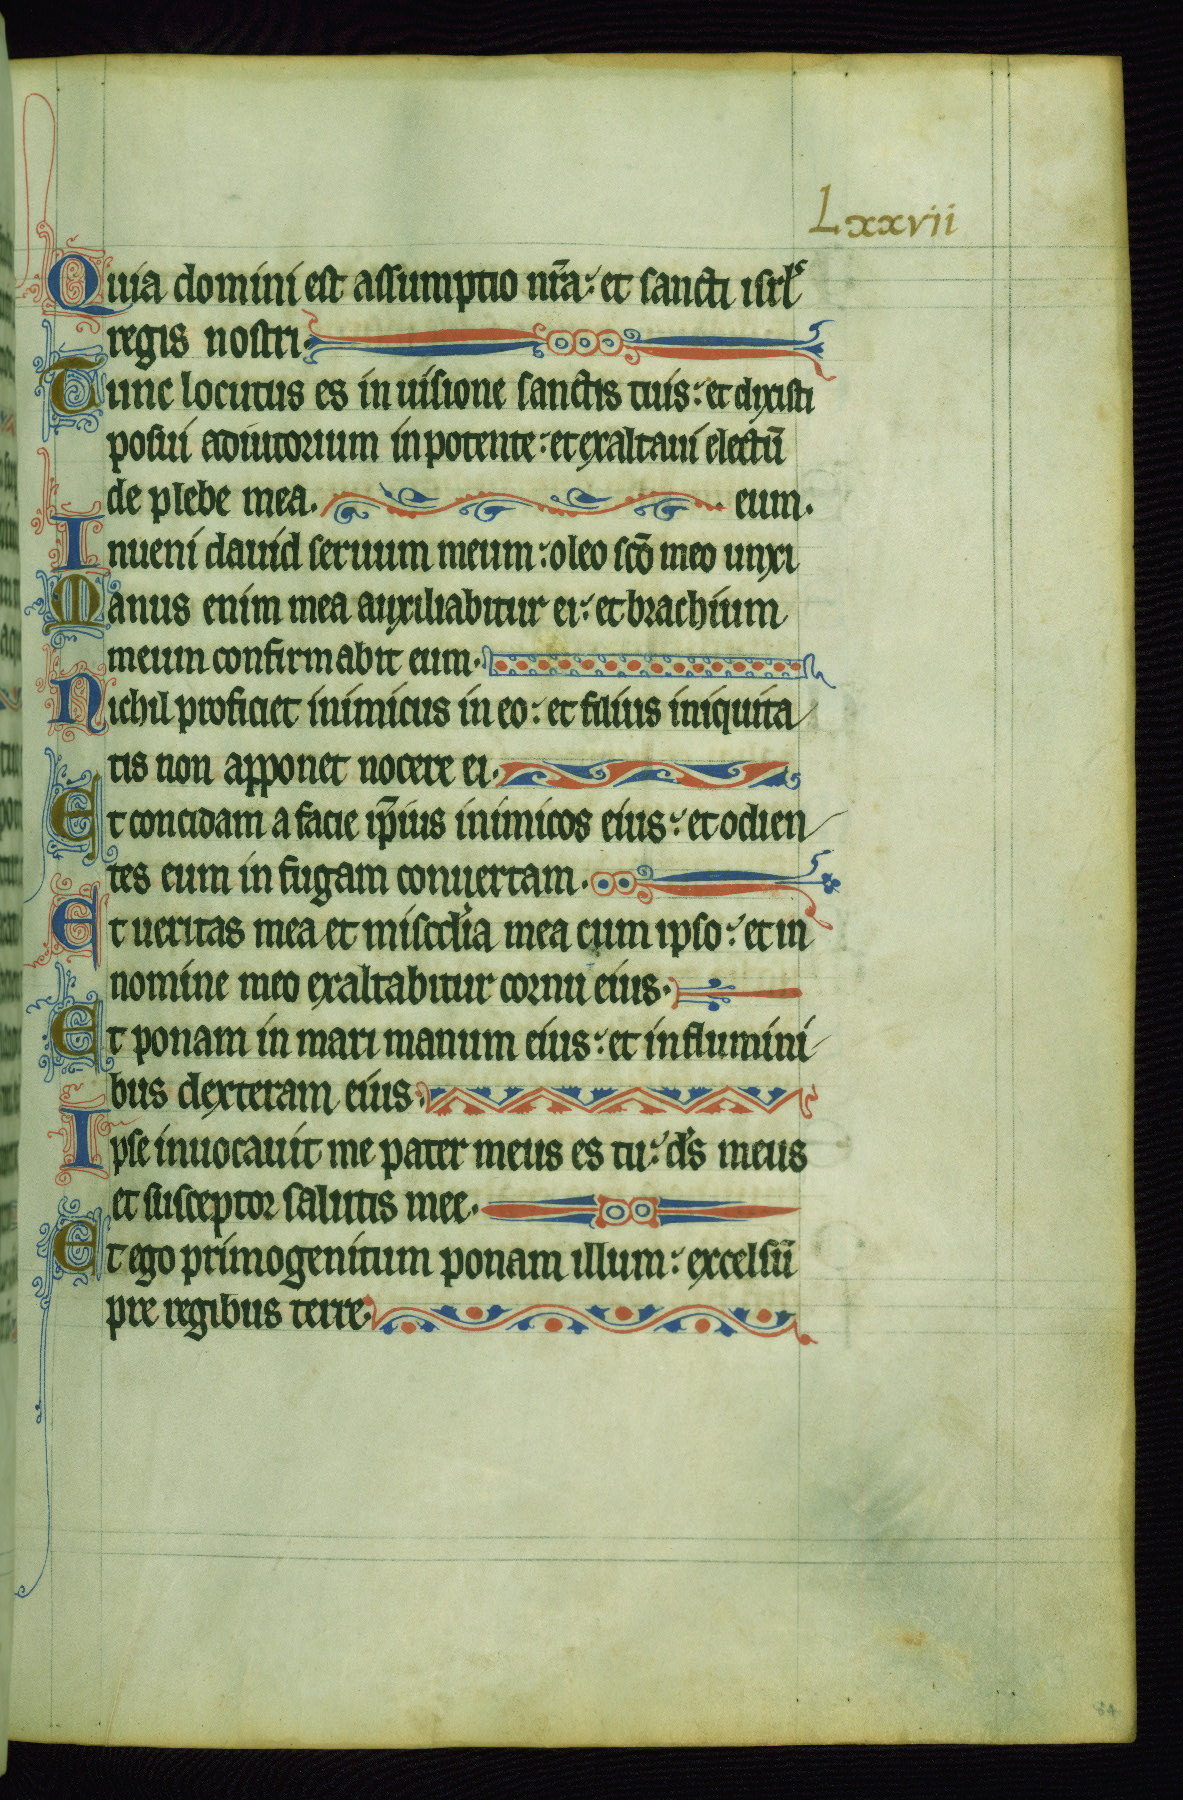 Lxxvii
Quia domini est assumptio nr̃a: et sancti isrl̾
regis nostri.
Tunc locutus es in uisione sanctis tuis: et dixisti
posui adiutorium in potente: et exaltaui electũ
de plebe mea. eum.
Inueni dauid seruum meum: oleo scõ meo unxi
Manus enim mea auxiliabitur ei: et brachium
meum confirmabit eum.
Nichil proficiet inimicus in eo: et filius iniquita
tis non apponet nocere ei.
Et concidam a facie ip̃ius inimicos eius: et odien
tes eum in fugam conuertam.
Et ueritas mea et miscd̾ia mea cum ipso: et in
nomine meo exaltabitur cornu eius.
Et ponam in mari manum eius: et in flumini
bus dexteram eius.
Ipse inuocauit me pater meus es tu: d̾s meus
et susceptor salutis mee.
Et ego primogenitum ponam illum: excelsũ
pre regibus terre.
84